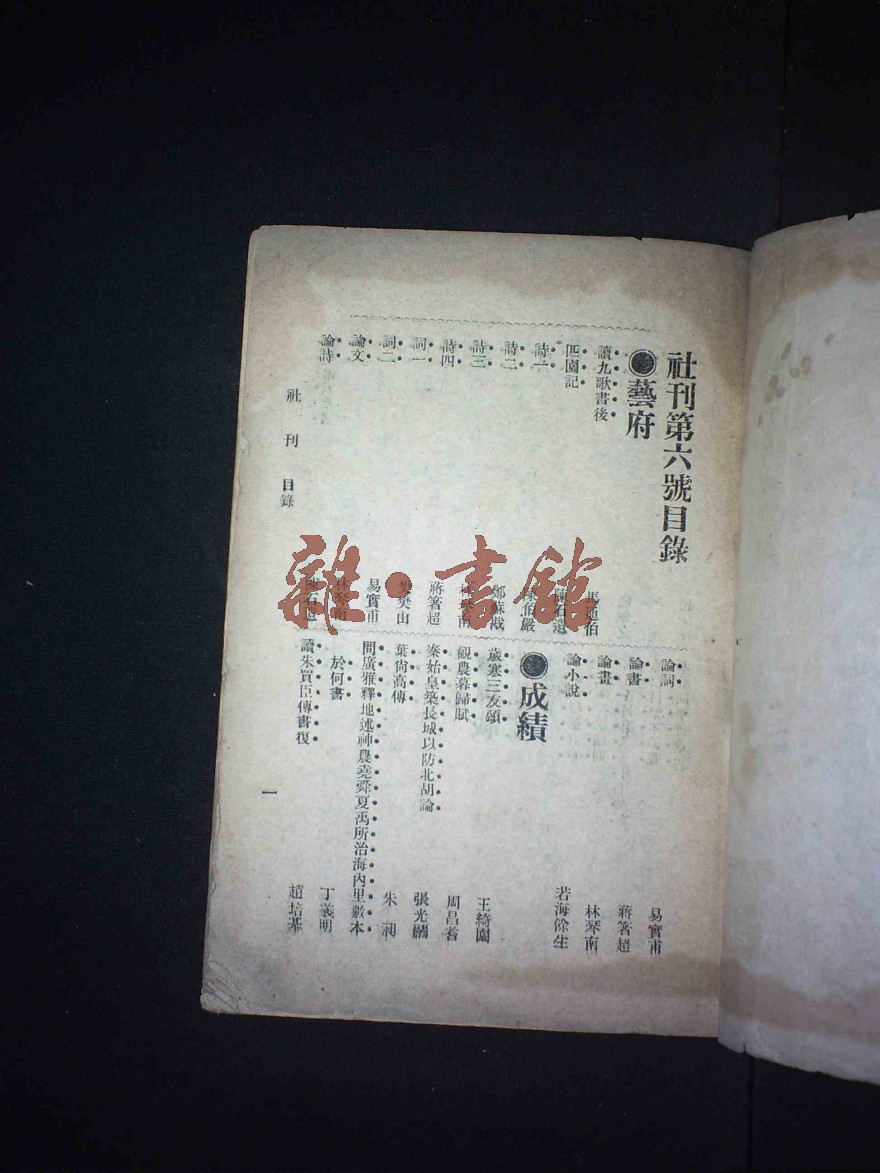 社刊第六號目錄
藝府
讀九歌書後 馬通伯
匹園記 陳石遺
詩一 伯嚴
詩二 鄭蘇戡
詩三 琴南
詩四 蔣箸超
詞一 樊樊山
詞二 易實甫
論文 林琴南
論詩 陳石遺
論詞 易實甫
論書 蔣箸超
論畫 林琴南
論小說 若海餘生
成績
歲寒三友頌 王綺園
觀農暮歸賦 周昌耆
秦始皇築長城以防北胡論 張光
葉尙高傳 朱
問廣雅釋地述神農堯舜夏禹所治海內里數本
於何書 丁義明
讀朱買臣傳書復 趙培基
社刊 目錄
一
雜·書館